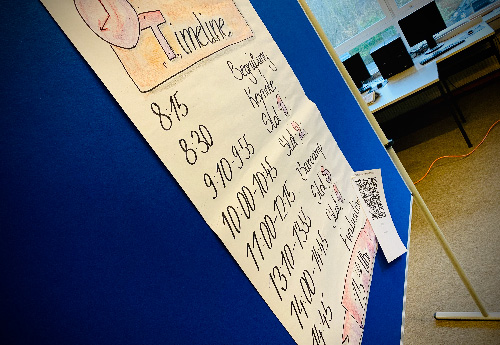 Timeline
8:15 Begrüßung
8:30 Keynote
9:10-9:55 Slot
10:00-10:45 Slot
11:00-12:15 Barcamp
13:10-13:55 Slot
14:00-14:45 Slot
14:45